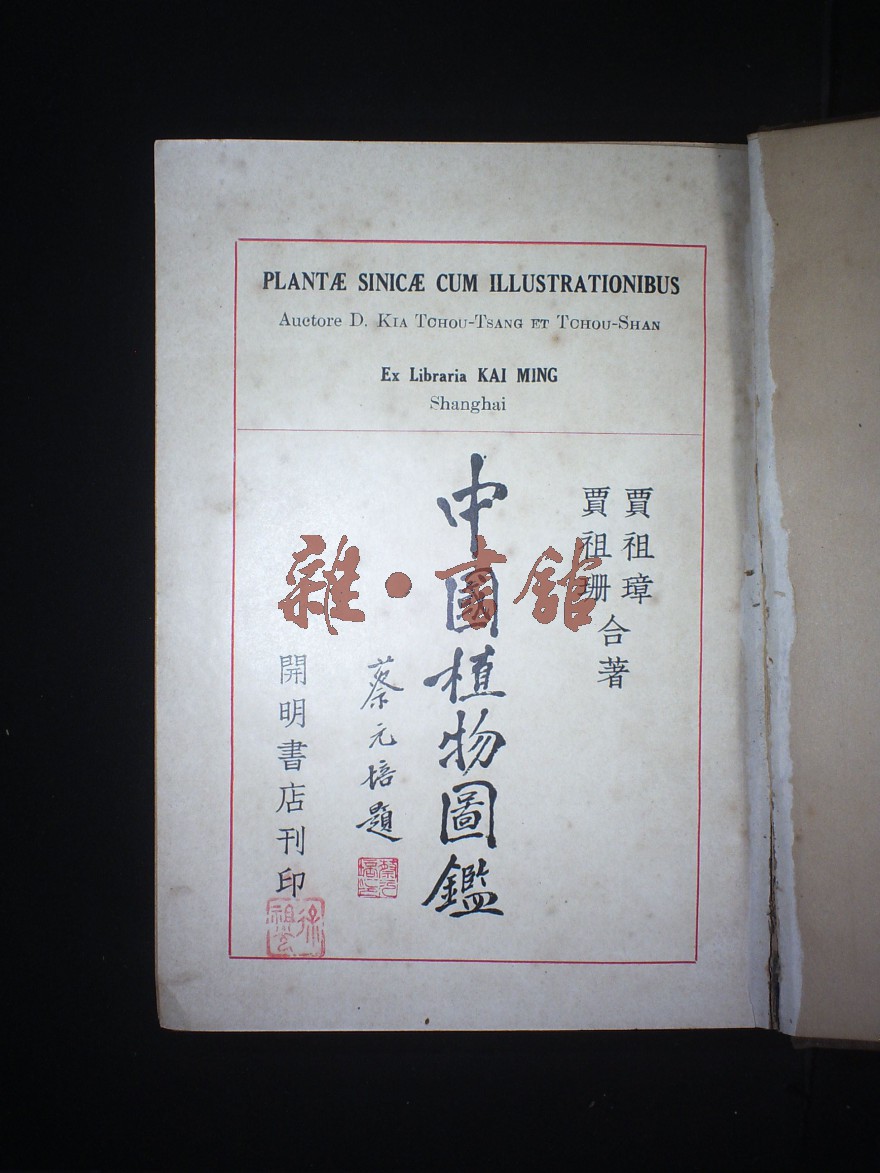 PLANTÆ SINICÆ CUM ILLUSTRATIONIBUS
Auctore D. KIA TCHOU-TSANG ET TCHOU-SHAN
Ex Libraria KAI MING
Shanghai
賈祖璋
賈祖珊
合著
中國植物圖鑑
蔡元培題
蔡元培
開明書店刊印
雜·書館